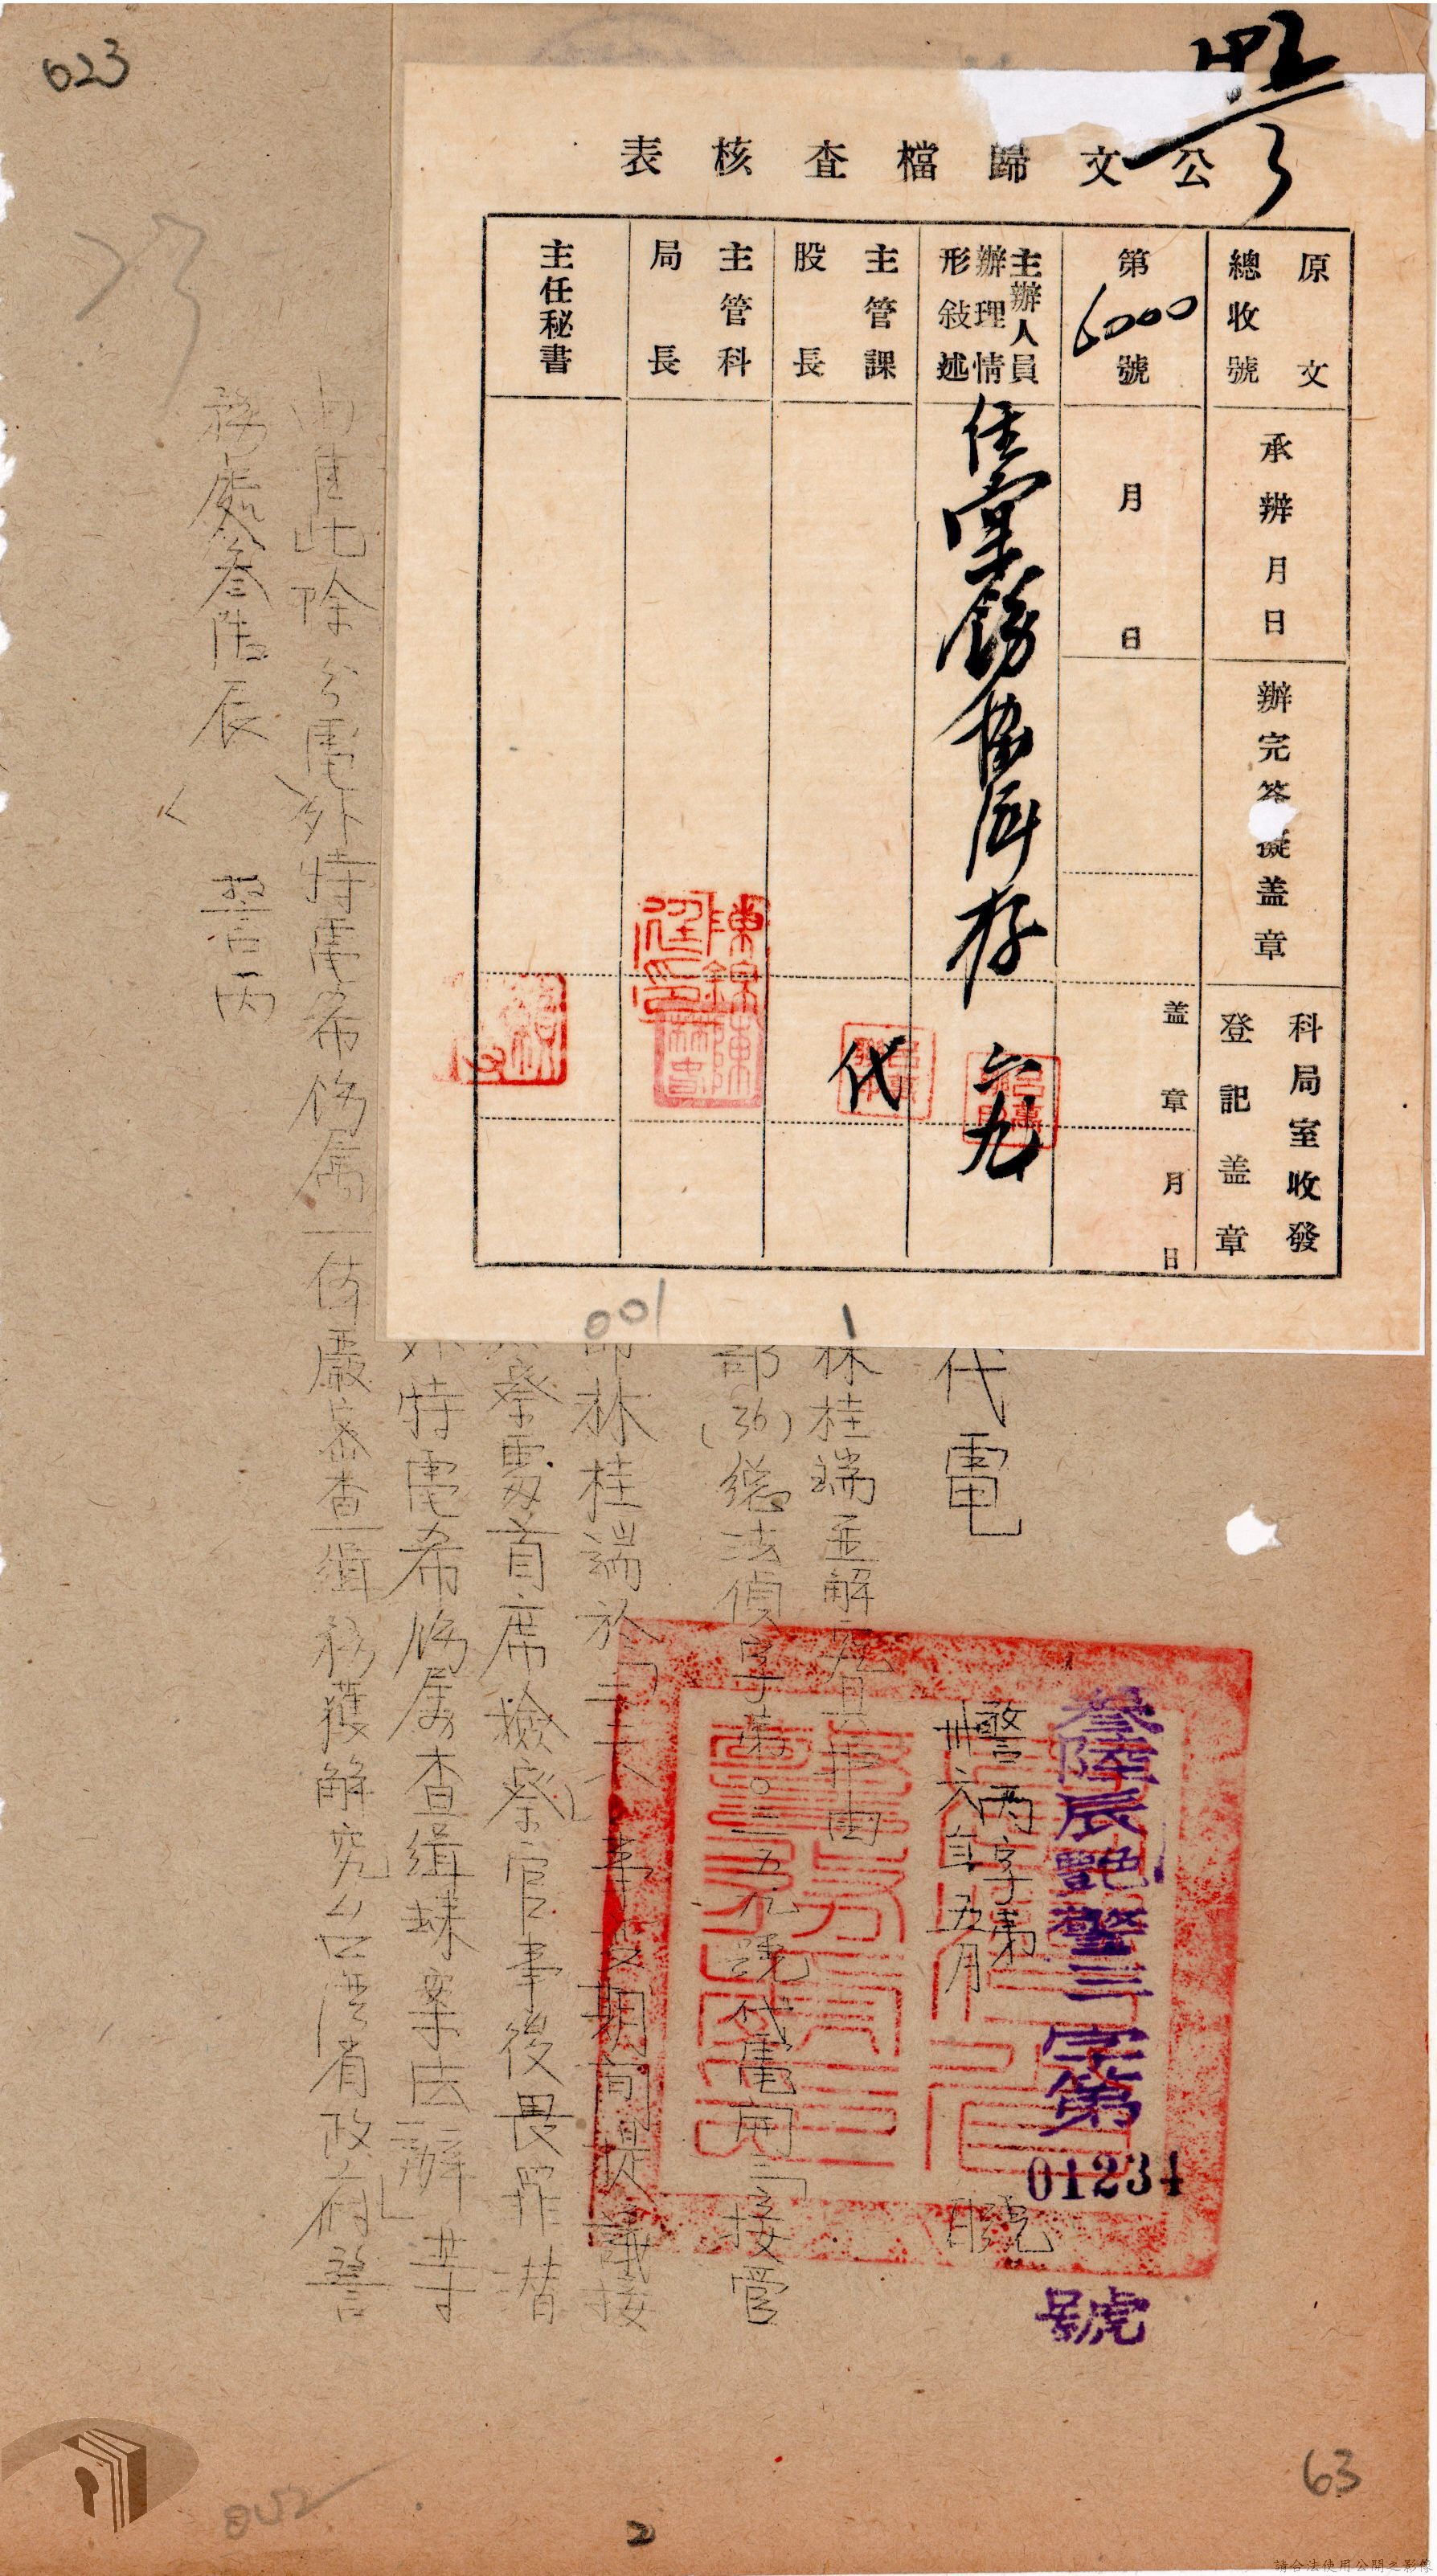 623
公文歸檔查核表
原文
總收號
承辦月日
辦完簽擬蓋章
科局室收發
登記蓋章
第6000號
月 日
盖章
月 日
主辦人員
辦理情
形敍述
存
六九
主管課
股長
代
主管科
局長
主任秘書
001
1
參陸辰艷警三字第
01234
號
代電
警丙字第 號
卅六年五月
林桂瑞並解究具報由
部(36)總法偵字第〇三五九號代電開:「接管
林桂端於「二二八」事變期間提議接
察處首席檢察官事後畏罪潛
外特電希飭屬查緝歸案法辦」等
由准此除分電外特電希飭屬一体嚴密查緝務獲解究台灣省政府警
務處叁陆辰 警丙
63
2
請合法使用公開之影像